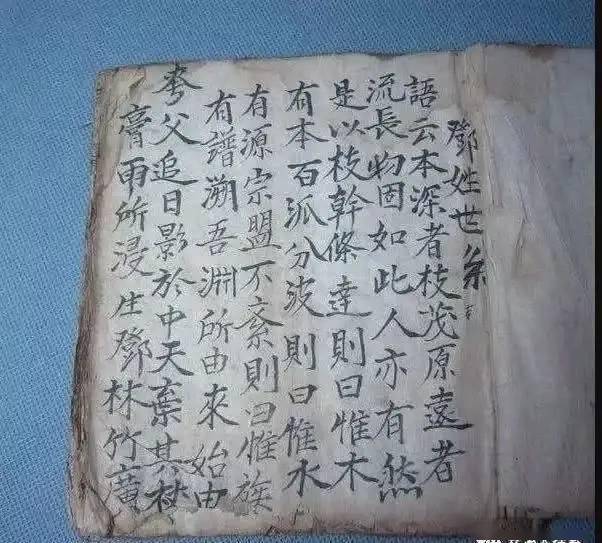 鄧姓世系
語云本深者枝茂原遠者
流長物固如此人亦有然
是以枝幹條達則曰惟木
有本百派分波則曰惟水
有源宗盟不紊則曰惟族
有譜溯吾淵所由來始由
夸父追日影於中天棄其杖
膏雨所浸生鄧林竹廣